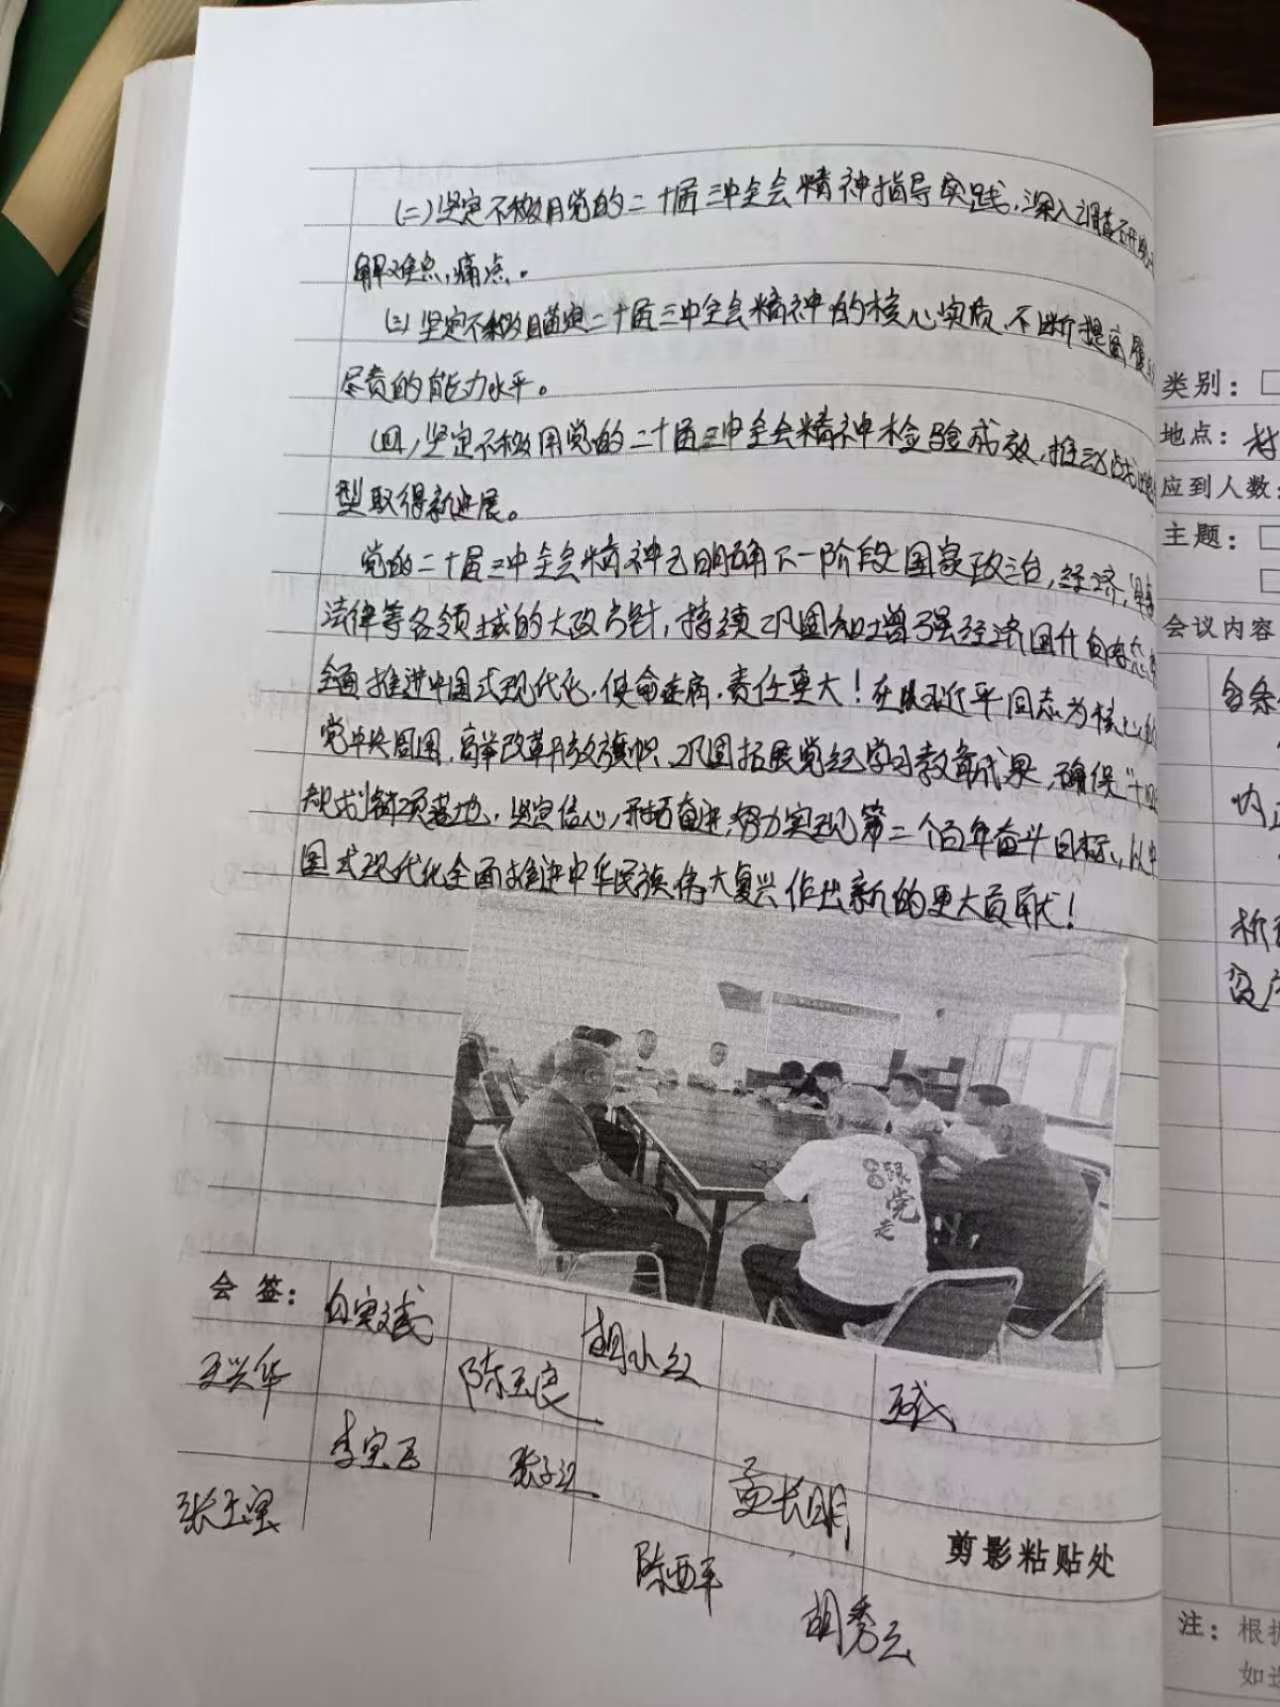 (二)坚定不移用党的二十届三中全会精神指导实践,深入调查研究
解难点,痛点。
(三)坚定不移锚定二十届三中全会精神的核心实质,不断提高履
尽责的能力水平。
(四)坚定不移用党的二十届三中全会精神检验成效,推动
型取得新进展。
党的二十届三中全会精神已明确下一阶段国家政治,经济,
法律等各领域的大政方针,持续巩固和增强经济回升向好态
全面推进中国式现代化,使命在肩,责任重大!在以习近平同志为核心的
党中央周围,高举改革开放旗帜,巩固拓展党纪学习教育成果,确保"十四
规划 落地,坚定信心,开拓奋进,努力实现第二个百年奋斗目标,以中
国式现代化全面推进中华民族伟大复兴作出新的更大贡献!
跟党走
会 签:
白宝斌
胡小红
王兴华
陈玉良
李宝玉
孟长明
张玉宝
陈西平
胡秀云
剪影粘贴处
类别:
地点:村
应到人数:
主题:
会议内容
各条
内
析
设
注:根据
如